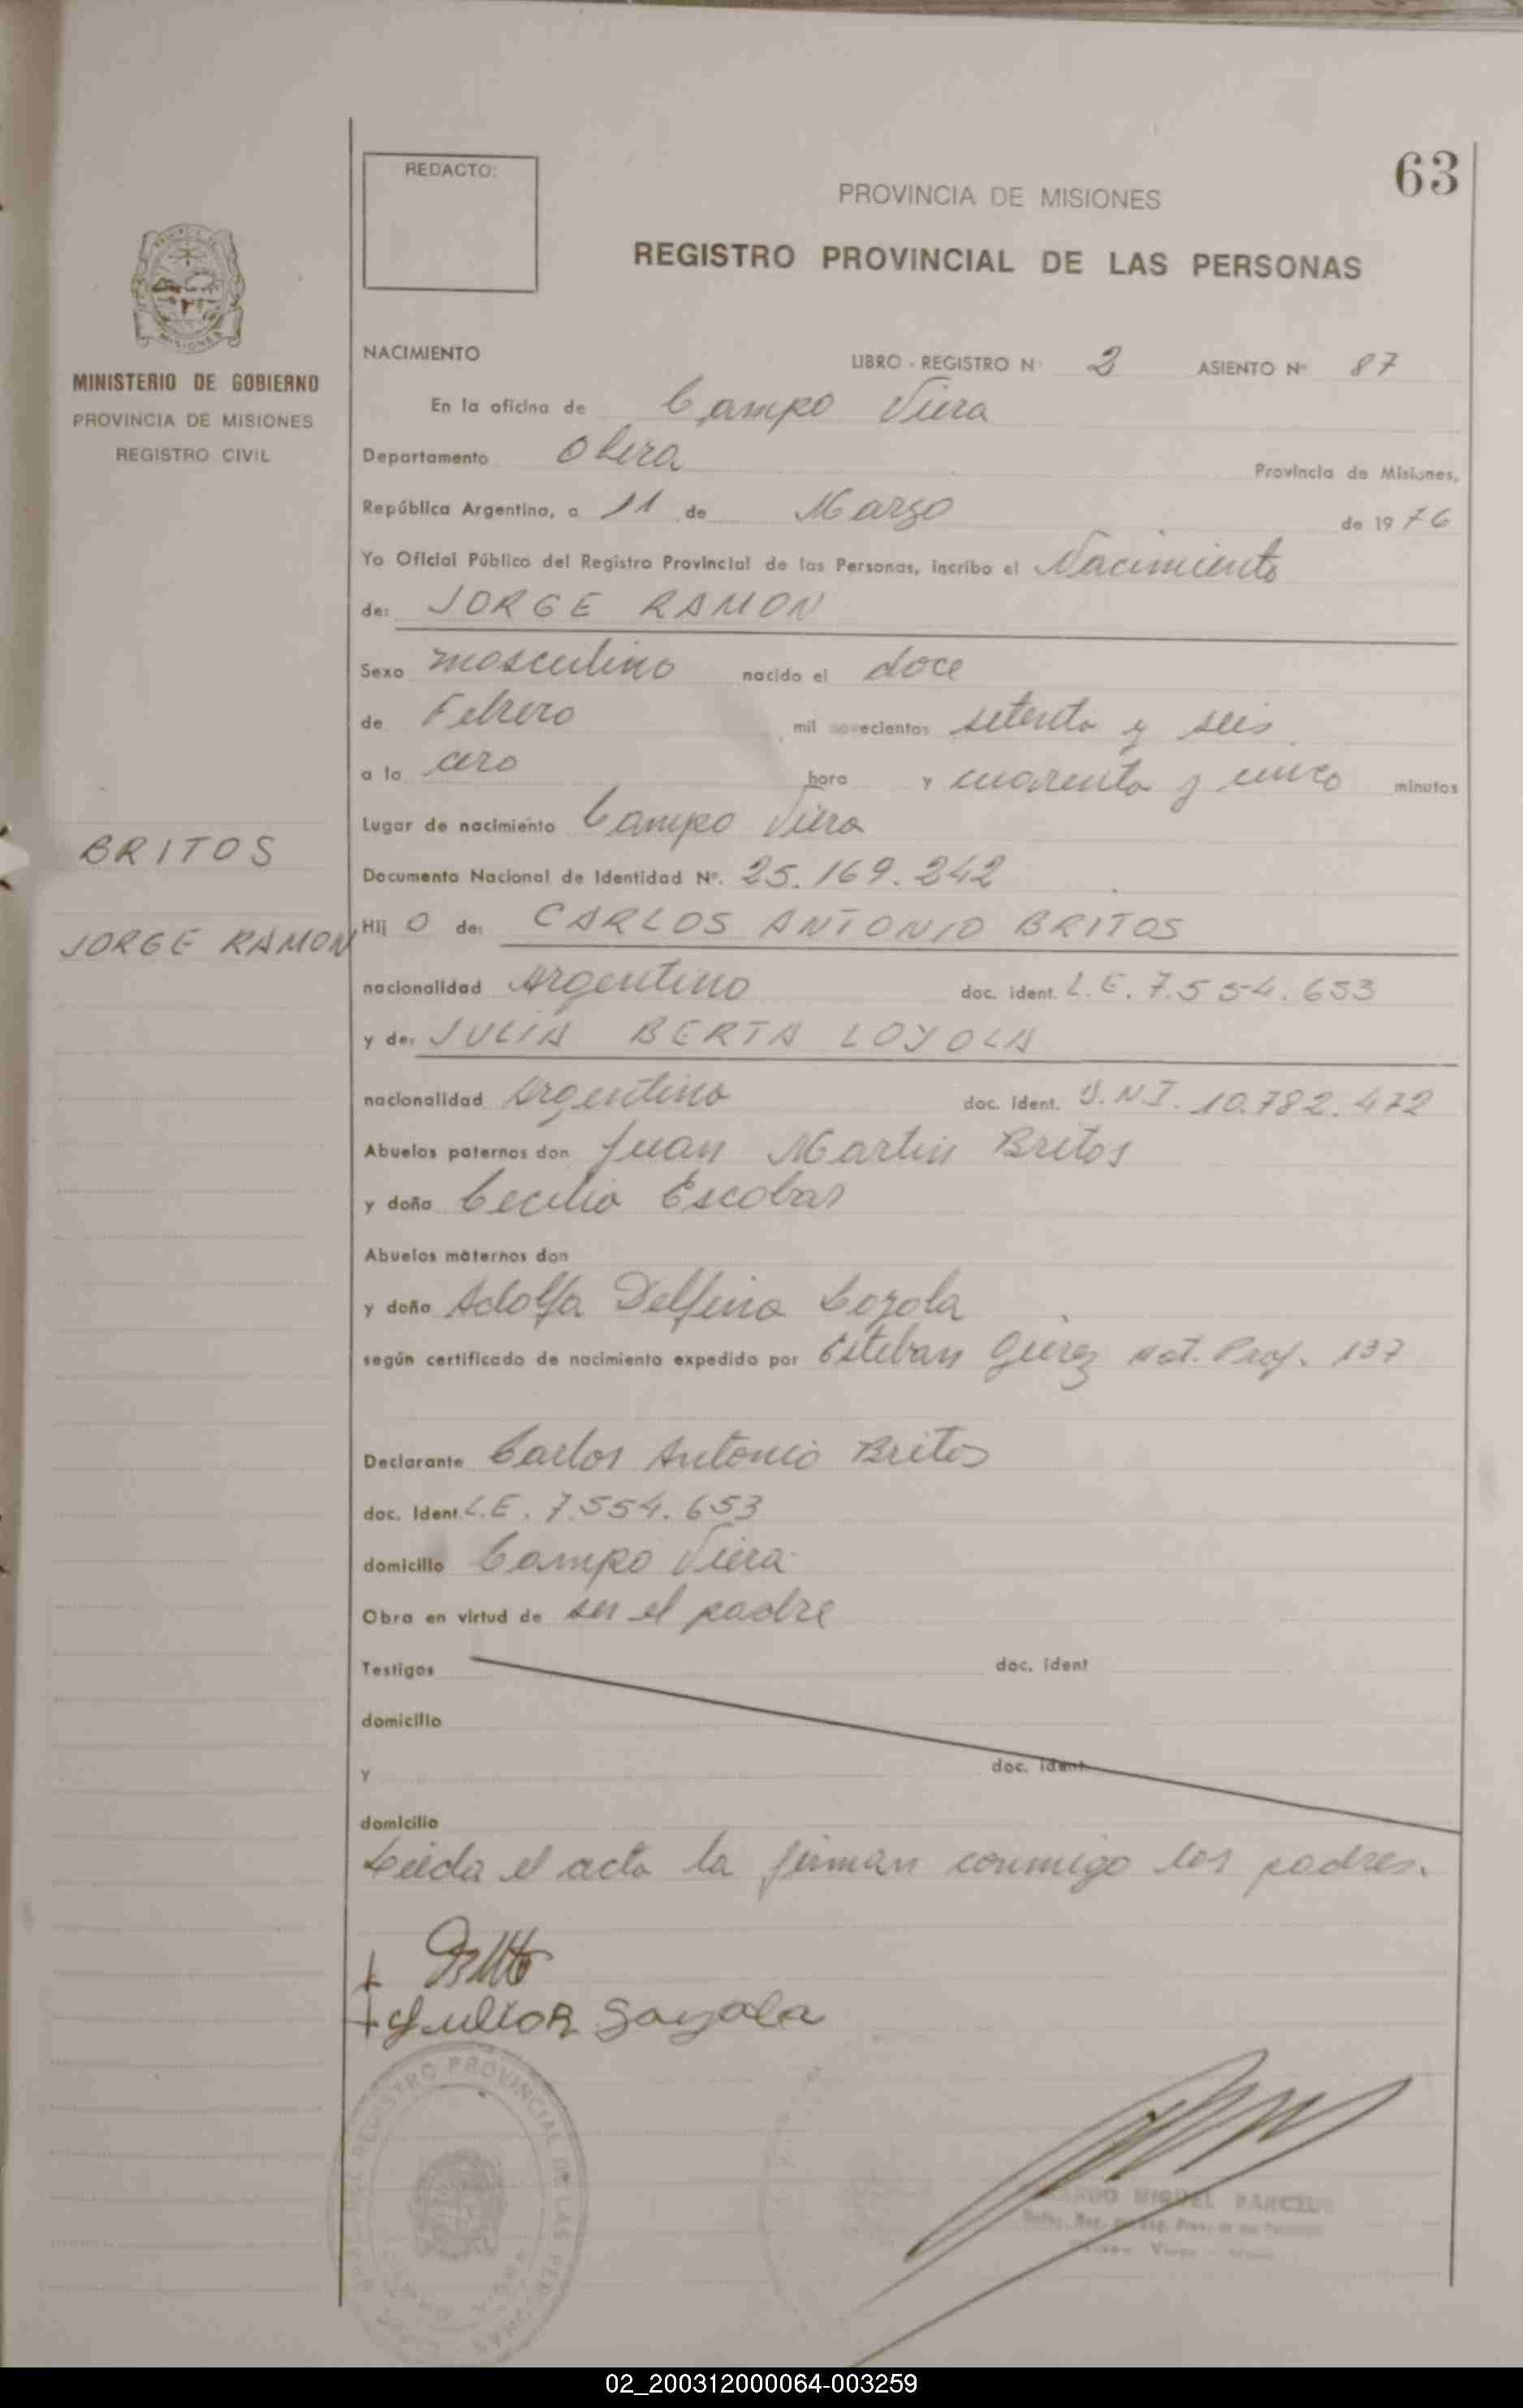 63
REDACTO:
PROVINCIA DE MISIONES
REGISTRO PROVINCIAL DE LAS PERSONAS
MISIONES
MINISTERIO DE GOBIERNO
PROVINCIA DE MISIONES
REGISTRO CIVIL
NACIMIENTO
LIBRO - REGISTRO N° 2 ASIENTO Nº 87
En la oficina de Campo Viera
Departamento Obera Provincia de Misiones,
República Argentina, a 11 de Marzo de 1976
Yo Oficial Público del Registro Provincial de las Personas, incribo el Nacimiento
de: JORGE RAMON
Sexo masculino nacido el doce
de Febrero mil novecientos setenta y seis
a la cero hora y cuarenta y cinco minutos
Lugar de nacimiento Campo Viera
BRITOS
JORGE RAMON
Documento Nacional de Identidad Nº. 25.169.242
Hij o de: CARLOS ANTONIO BRITOS
nacionalidad Argentino doc. ident. L.E. 7.554.653
y de: JULIA BERTA LOYOLA
nacionalidad Argentina doc. ident. D.N.I. 10.782.472
Abuelos paternos don Juan Martin Britos
y doña Cecilia Escobar
Abuelos maternos don
y doña Adolfa Delfina Loyola
según certificado de nacimiento expedido por Esteban mat. Prof. 137
Declarante Carlos Antonio Britos
doc. Ident. L.E. 7.554.653
domicilio Campo Viera
Obra en virtud de ser el padre
Testigos doc. ident
domicilio
y doc. ident.
domicilio
Leída el acta la firman conmigo los padres.
REGISTRO PROVINCIAL DE LAS PERSONAS
MIGUEL
02_200312000064-003259